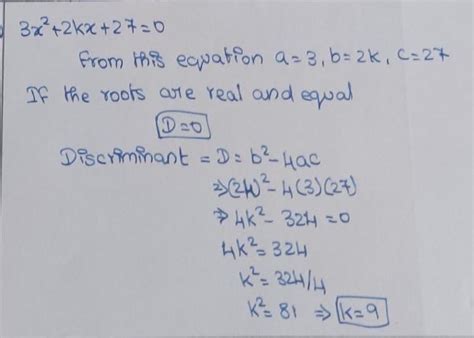 3x²+2kx+27=0
from this equation a=3, b=2k, c=27
If the roots are real and equal
D=0
Discriminant = D= b²-4ac
⇒(2k)²-4(3)(27)
⇒ 4k²- 324 =0
4k²= 324
k²= 324/4
k²= 81 ⇒ k=9